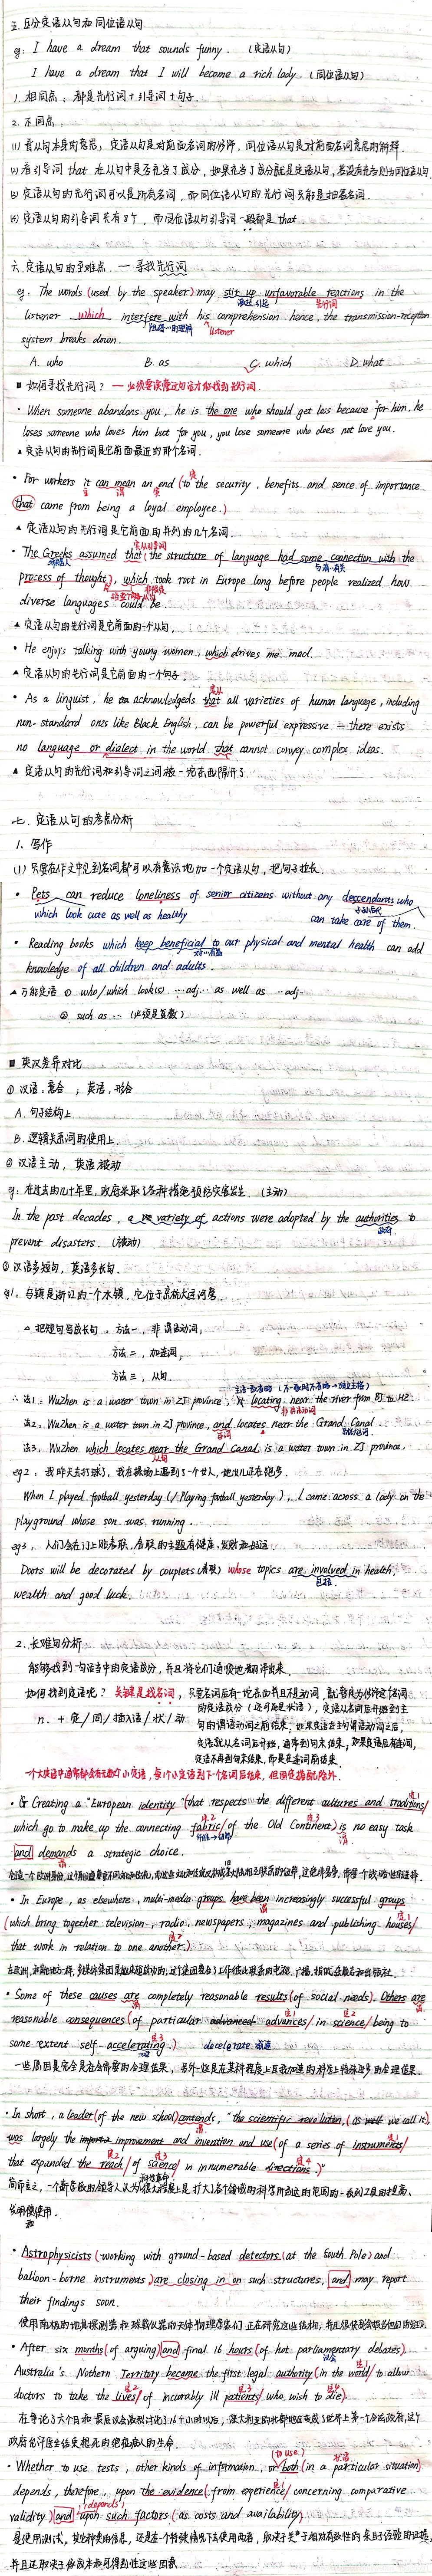 五. 区分定语从句和同位语从句
eg: I have a dream that sounds funny. (定语从句)
I have a dream that I will become a rich lady. (同位语从句)
1. 相同点: 都是先行词+引导词+句子.
2. 不同点:
(1) 看从句本身的意思, 定语从句是对前面名词的修饰, 同位语从句是对前面名词意思的解释.
(2) 看引导词 that 在从句中是否充当了成分, 如果充当了成分就是定语从句, 若没有充当则为同位语从句
(3) 定语从句的先行词可以是所有名词, 而同位语从句的先行词只能是抽象名词.
(4) 定语从句的引导词共有8个, 而同位语从句引导词一般都是 that.
六. 定语从句的至难点 — 寻找先行词
eg: The words (used by the speaker) may stir up unfavorable reactions in the
激起,引起 先行词
listener which interfere with his comprehension hence, the transmission-reception
listener
system breaks down.
A. who B. as C. which D. what
■ 如何寻找先行词? — 必须要读懂这句话才能找到先行词.
· When someone abandons you, he is the one who should get loss because for him, he
loses someone who loves him but for you, you lose someone who does not love you.
▲ 定语从句的先行词是它前面最近的那个名词.
· For workers it can mean an end (to the security, benefits and sence of importance
主 谓 宾
that came from being a loyal employee.)
▲ 定语从句的先行词是它前面的并列的几个名词.
· The Greeks assumed that (the structure of language had some connection with the
process of thought), which took root in Europe long before people realized how
diverse languages could be.
▲ 定语从句的先行词是它前面的一个从句.
· He enjoys talking with young women, which drives me mad.
▲ 定语从句的先行词是它前面的一个句子.
· As a linguist, he acknowledgeds that all varieties of human language, including
non-standard ones like Black English, can be powerful expressive — there exists
no language or dialect in the world that cannot convey complex ideas.
▲ 定语从句的先行词和引导词之间被一坨东西隔开了
七. 定语从句的考点分析
1. 写作
(1) 只要在作文中见到名词都可以有意识地加一个定语从句, 把句子拉长.
· Pets can reduce loneliness of senior citizens without any descendants who
which look cute as well as healthy can take care of them.
· Reading books which keep beneficial to our physical and mental health can add
knowledge of all children and adults.
▲ 万能定语 ① who/which look(s) … adj… as well as … adj.
② such as … (必须是复数)
■ 英汉差异对比
① 汉语, 意合 ; 英语, 形合
A. 句子结构上
B. 逻辑关系词的使用上.
② 汉语主动, 英语被动
eg: 在过去的几十年里, 政府采取了各种措施预防灾害发生. (主动)
In the past decades, a variety of actions were adopted by the authorities to
政府
prevent disasters. (被动)
③ 汉语多短句, 英语多长句.
eg1: 乌镇是浙江的一个水镇, 它位于京杭大运河旁
▵ 把短句写成长句, 方法一, 非谓语动词;
方法二, 加连词;
方法三, 从句.
∴ 法1: WuZhen is a water town in ZJ province, locating near the river from BJ to HZ.
非谓语动词
法2, WuZhen is a water town in ZJ province, and locates near the Grand Canal
连词
法3, WuZhen which locates near the Grand Canal is a water town in ZJ province.
从句
eg2: 我昨天去打球了, 我在操场上遇到了一个女人, 她女儿正在跑步.
When I played football yesterday (/Playing football yesterday), I came across a lady on the
playground whose son was running.
eg3: 人们会在门上贴春联, 春联的主题有健康, 发财和好运.
Doors will be decorated by couplets (春联) whose topics are involved in health,
包括
wealth and good luck.
2. 长难句分析
能够找到一句话当中的定语成分, 并且将它们通顺地翻译出来.
如何找到定语呢? 关键是找名词, 只要名词后有一坨东西并且不是动词, 就暂定为修饰这个名词
n. + 定/同/插入语/状/动 的定语成分 (还可能是状语), 定语从名词后开始到主
句的谓语动词之前结束; 如果定语在主句谓语动词之后,
定语就从名词后开始, 通常到句末结束; 如果定语后有连词,
定语不再到句末结束, 而是在连词前结束.
一个大定语中通常都会有无数个小定语, 每个小定语到下一个名词后结束, 但固定搭配除外.
· Creating a "European identity" (that respects the different cultures and traditions/
which go to make up the connecting fabric/of the Old Continent) is no easy task
and demands a strategic choice.
· In Europe, as elsewhere, multi-media groups have been increasingly successful groups
(which bring together television, radio, newspapers, magazines and publishing houses/
that work in relation to one another.)
· Some of these causes are completely reasonable results (of social needs). Others are
reasonable consequences (of particular advances/ in science/ being to
some extent self-accelerating.) decelerate 减速
· In short, a leader (of the new school) contends, "the scientific revolution, (as we call it),
was largely the improvement and invention and use (of a series of instruments/
that expanded the reach/ of science/ in innumerable directions."
· Astrophysicists (working with ground-based detectors (at the South Pole) and
balloon-borne instruments) are closing in on such structures, and may report
their findings soon.
· After six months (of arguing) and final 16 hours (of hot parliamentary debates),
Australia's Nothern Territory became the first legal authority (in the world/ to allow
doctors to take the lives/ of incurably ill patients/ who wish to die).
· Whether to use tests, other kinds of information, or both (in a particular situation)
depends, therefore, upon the evidence (from experience/ concerning comparative
validity) and upon such factors (as costs and availability)